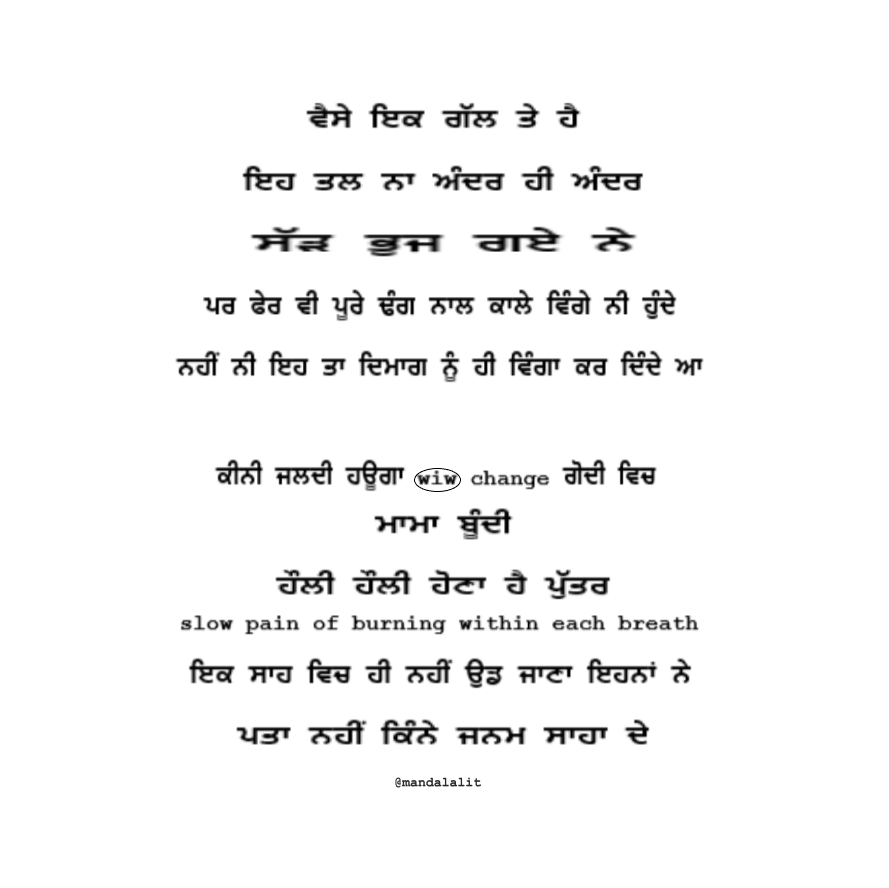 ਵੈਸੇ ਇਕ ਗੱਲ ਤੇ ਹੈ
ਇਹ ਤਲ ਨਾ ਅੰਦਰ ਹੀ ਅੰਦਰ
ਸੱੜ ਭੁਜ ਗਏ ਨੇ
ਪਰ ਫੇਰ ਵੀ ਪੂਰੇ ਢੰਗ ਨਾਲ ਕਾਲੇ ਵਿੰਗੇ ਨੀ ਹੁੰਦੇ
ਨਹੀਂ ਨੀ ਇਹ ਤਾ ਦਿਮਾਗ ਨੂੰ ਹੀ ਵਿੰਗਾ ਕਰ ਦਿੰਦੇ ਆ
ਕੀਨੀ ਜਲਦੀ ਹਊਗਾ wiw change ਗੋਦੀ ਵਿਚ
ਮਾਮਾ ਬੂੰਦੀ
ਹੌਲੀ ਹੌਲੀ ਹੋਣਾ ਹੈ ਪੁੱਤਰ
slow pain of burning within each breath
ਇਕ ਸਾਹ ਵਿਚ ਹੀ ਨਹੀਂ ਉਡ ਜਾਣਾ ਇਹਨਾਂ ਨੇ
ਪਤਾ ਨਹੀਂ ਕਿੰਨੇ ਜਨਮ ਸਾਹਾ ਦੇ
@mandalalit